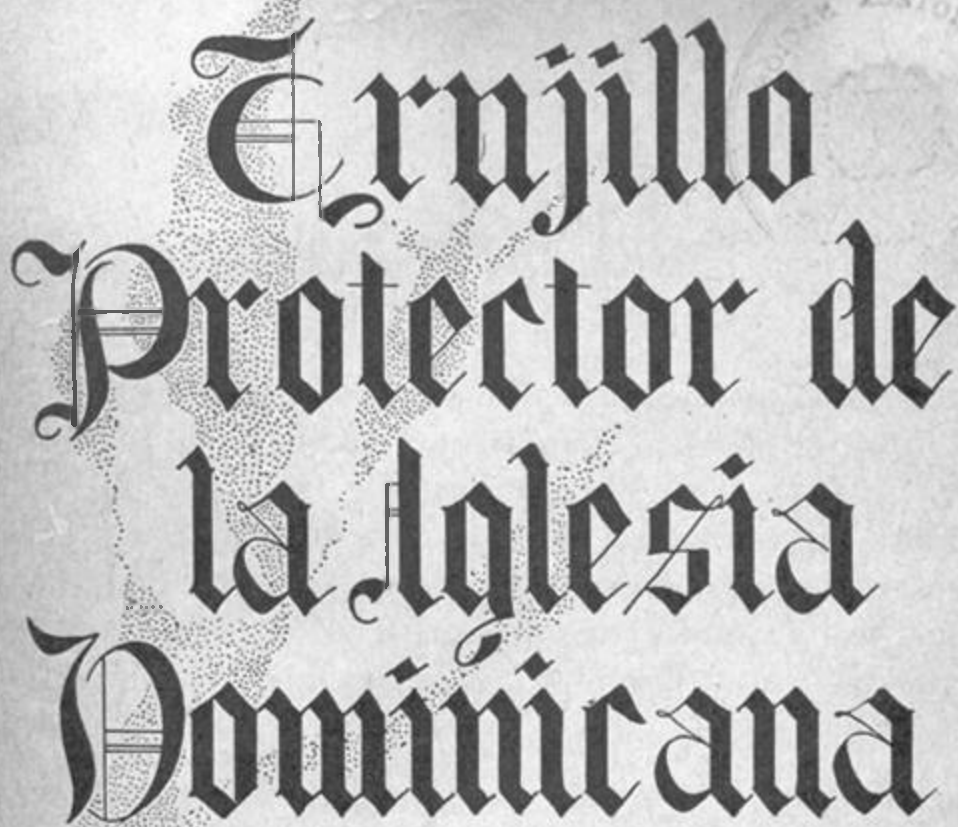 Trujillo
Protector de
la Iglesia
Dominicana